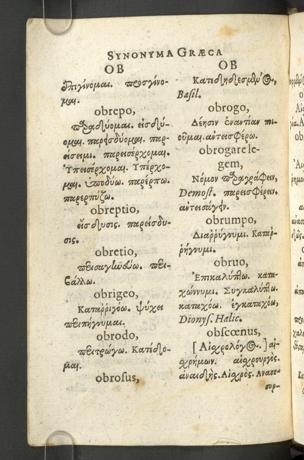 SYNONYMA GRÆCA
OB
ἐπιγίνομαι. προσγίνο-
μαι.
obrepo,
παραδύομαι. εἰσδύ-
ομαι. παρεισδύομαι. παρ-
είσειμι. παρεισέρχομαι.
Ὑπεισέρχομαι. Ὑπέρχο-
μαι. ὑποδύω. παρέρπω.
παρερπύζω.
obreptio,
εἴσδυσις. παρείσδυ-
σις.
obretio,
περισαγηνεύω. περι-
βάλλω.
obrigeo,
Καταῤῥιγόω. ψύχει
περιπήγνυμαι.
obrodo,
περιτρώγω. Κατέδο-
μαι.
obrosus,
OB
Basil.
obrogo,
Δέησιν ἐναντίαν ποι-
οῦμαι. ἀντεισφέρω.
obrogare le-
gem,
Νόμον παραγράφειν,
Demost. παρεισφέρειν.
obrumpo,
Διαῤῥήγνυμι. Καταῤ-
ῥήγνυμι.
obruo,
Ἐπικαλύπτω. κατα-
χώννυμι. Συγκαλύπτω.
καταχόω. ἐγκαταχόω,
Dionys. Halic.
obscœnus,
[Αἰχρολόγος.] αἰ-
χρήμων. αἰχρουργός.
ἀναιδής. Αἰχρός.